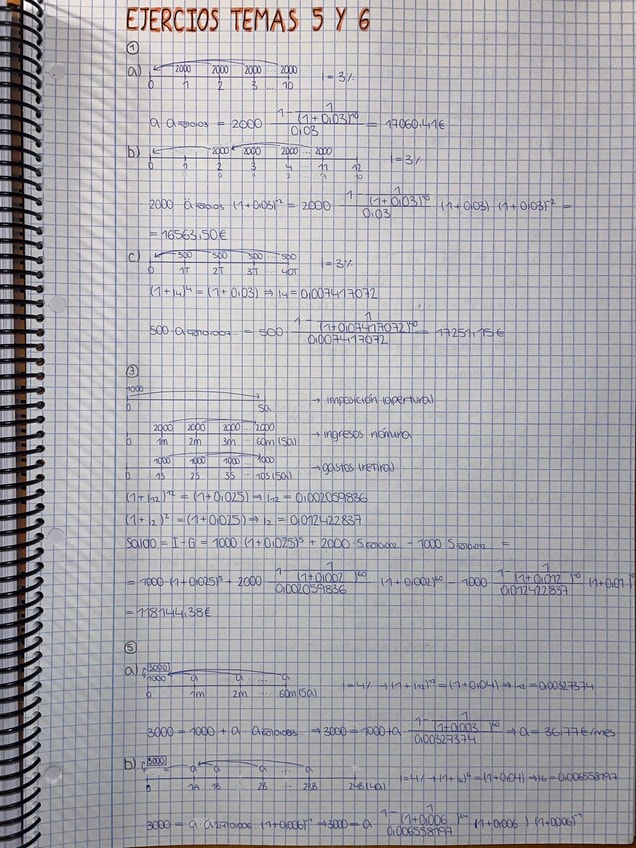 EJERCIOS TEMAS 5 Y 6
①
a) 2000 2000 2000 2000 i=3%
0 1 2 3 ... 10
= 2000 · 1 - 1/(1+0,03)^10 / 0,03 = 17060,41€
b) 2000 2000 2000 ... 2000 i=3%
0 1 2 3 4 ... 11 12
2000 ä (1+0,03)^-2 = 2000 1 - 1/(1+0,03)^10 / 0,03 (1+0,03) (1+0,03)^-2 =
= 16563,50€
c) 500 500 500 ... 500 i=3%
0 1T 2T 3T ... 40T
(1+i4)^4 = (1+0,03) ⇒ i4 = 0,007417072
500 · a ... = 500 · 1 - 1/(1+0,07417072)^40 / 0,007417072 = 17251,15€
③
1000
0 5a → imposición (apertura)
2000 2000 2000 ... 2000
0 1m 2m 3m ... 60m (5a) → ingresos nómina
1000 1000 1000 ... 1000
0 1S 2S 3S ... 10S (5a) → gastos (retira)
(1+i12)^12 = (1+0,025) ⇒ i12 = 0,002059836
(1+i2)^2 = (1+0,025) ⇒ i2 = 0,012422837
Saldo = I - G = 1000 · (1+0,025)^5 + 2000 · S - 1000 S =
= 1000 · (1+0,025)^5 + 2000 1 - 1/(1+0,002)^60 / 0,002059836 (1+0,002)^60 - 1000 1 - 1/(1+0,012)^10 / 0,012422837
= 118144,38€
⑤
a) 3000
1000 a a ... a
0 1m 2m ... 60m (5a) i=4% → (1+i12)^12 = (1+0,04) → i12 = 0,00327374
3000 = 1000 + a · a → 3000 = 1000 + a · 1 - 1/(1+0,003)^60 / 0,00327374 ⇒ a = 36,77€/mes
b) 3000 a a a ... a
0 1A 1B 2B ... 23B 24B (4a) i=4% → (1+i6)^6 = (1+0,04) → i6 = 0,006558197
3000 = a · (1+0,006)^-1 → 3000 = a · 1 - 1/(1+0,006) / 0,006558197 (1+0,006) (1+0,006)^-1